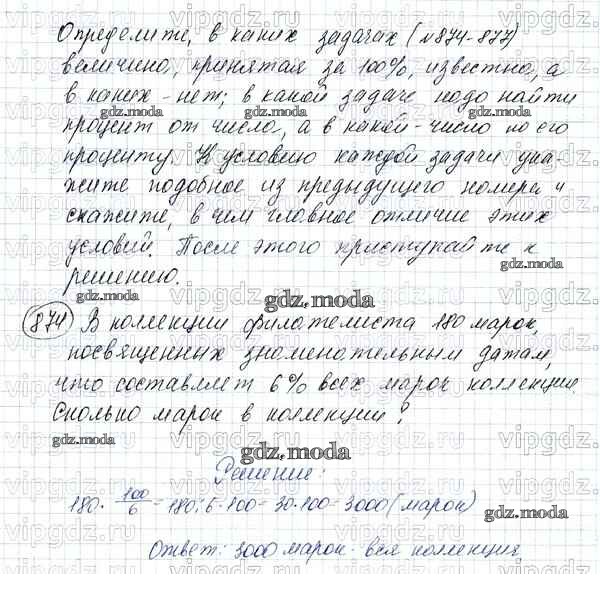 Определите, в каких задачах (№874-877)
величина, принятая за 100%, известна, а
в каких - нет; в какой задаче надо найти
процент от числа, а в какой - число по его
проценту. К условию каждой задачи ука-
жите подобное из предыдущего номера и
скажите, в чем главное отличие этих
условий. После этого приступайте к
решению.
874 В коллекции филателиста 180 марок,
посвященных знаменательным датам,
что составляет 6% всех марок коллекции.
Сколько марок в коллекции?
Решение:
180 · 100/6 = 180:6·100 = 30·100 = 3000 (марок)
Ответ: 3000 марок - вся коллекция
gdz.moda
vipgdz.ru